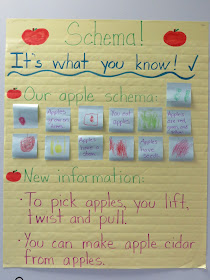 Schema!
It's what you know! ✓
Our apple schema:
Apples
You eat
apples
Apples
Apples
have
seeds
New information:
• To pick apples, you lift,
twist and pull.
• You can make apple cidar
from apples.